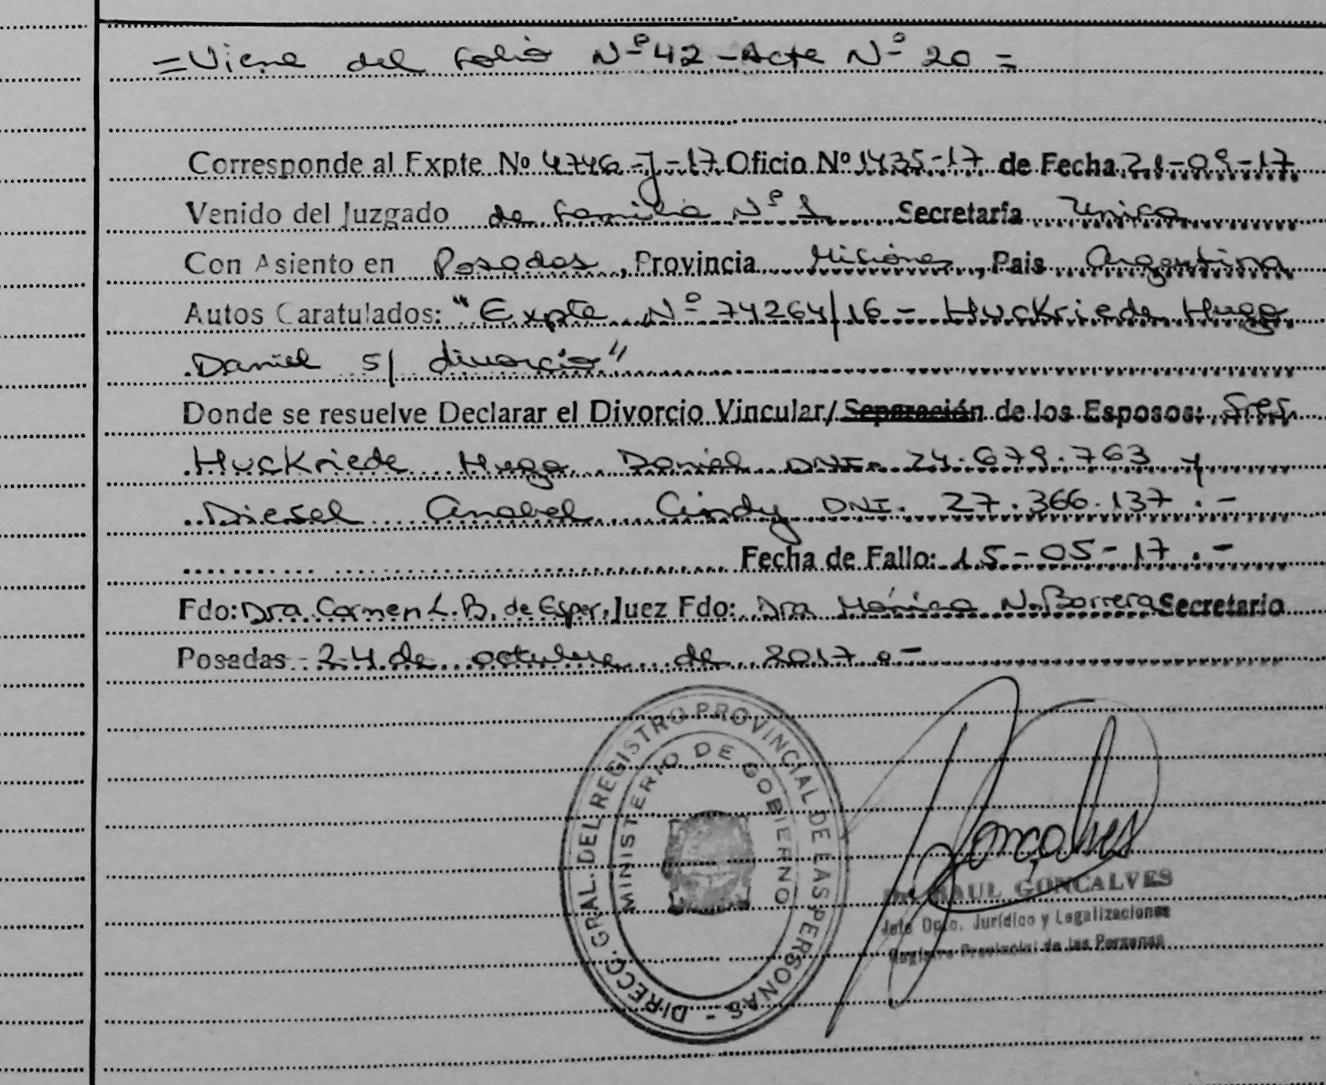 =Viene del folio Nº 42 - Acta Nº 20 =
Corresponde al Expte Nº 4746-J-17 Oficio Nº 1435-17 de Fecha 21-09-17
Venido del Juzgado de Familia Nº 1 Secretaría Unica
Con Asiento en Posadas, Provincia Misiones, Pais Argentina
Autos Caratulados: "Expte Nº 74264/16 - Huckriede Hugo
Daniel s/ divorcio"
Donde se resuelve Declarar el Divorcio Vincular/Separación de los Esposos: Sres
Huckriede Hugo Daniel DNI. 24.679.763 y
Diesel Anabel Cindy DNI. 27.366.137.-
Fecha de Fallo: 15-05-17.-
Fdo: Dra. Carmen L.B. de Esper, Juez Fdo: Dra Mónica N. Barrera Secretario
Posadas 24 de octubre de 2017.-
DIRECC. GRAL. DEL REGISTRO PROVINCIAL DE LAS PERSONAS -
MINISTERIO DE GOBIERNO
Goncalves
Dr. RAUL GONCALVES
Jefe Dpto. Jurídico y Legalizaciones
Registro Provincial de las Personas